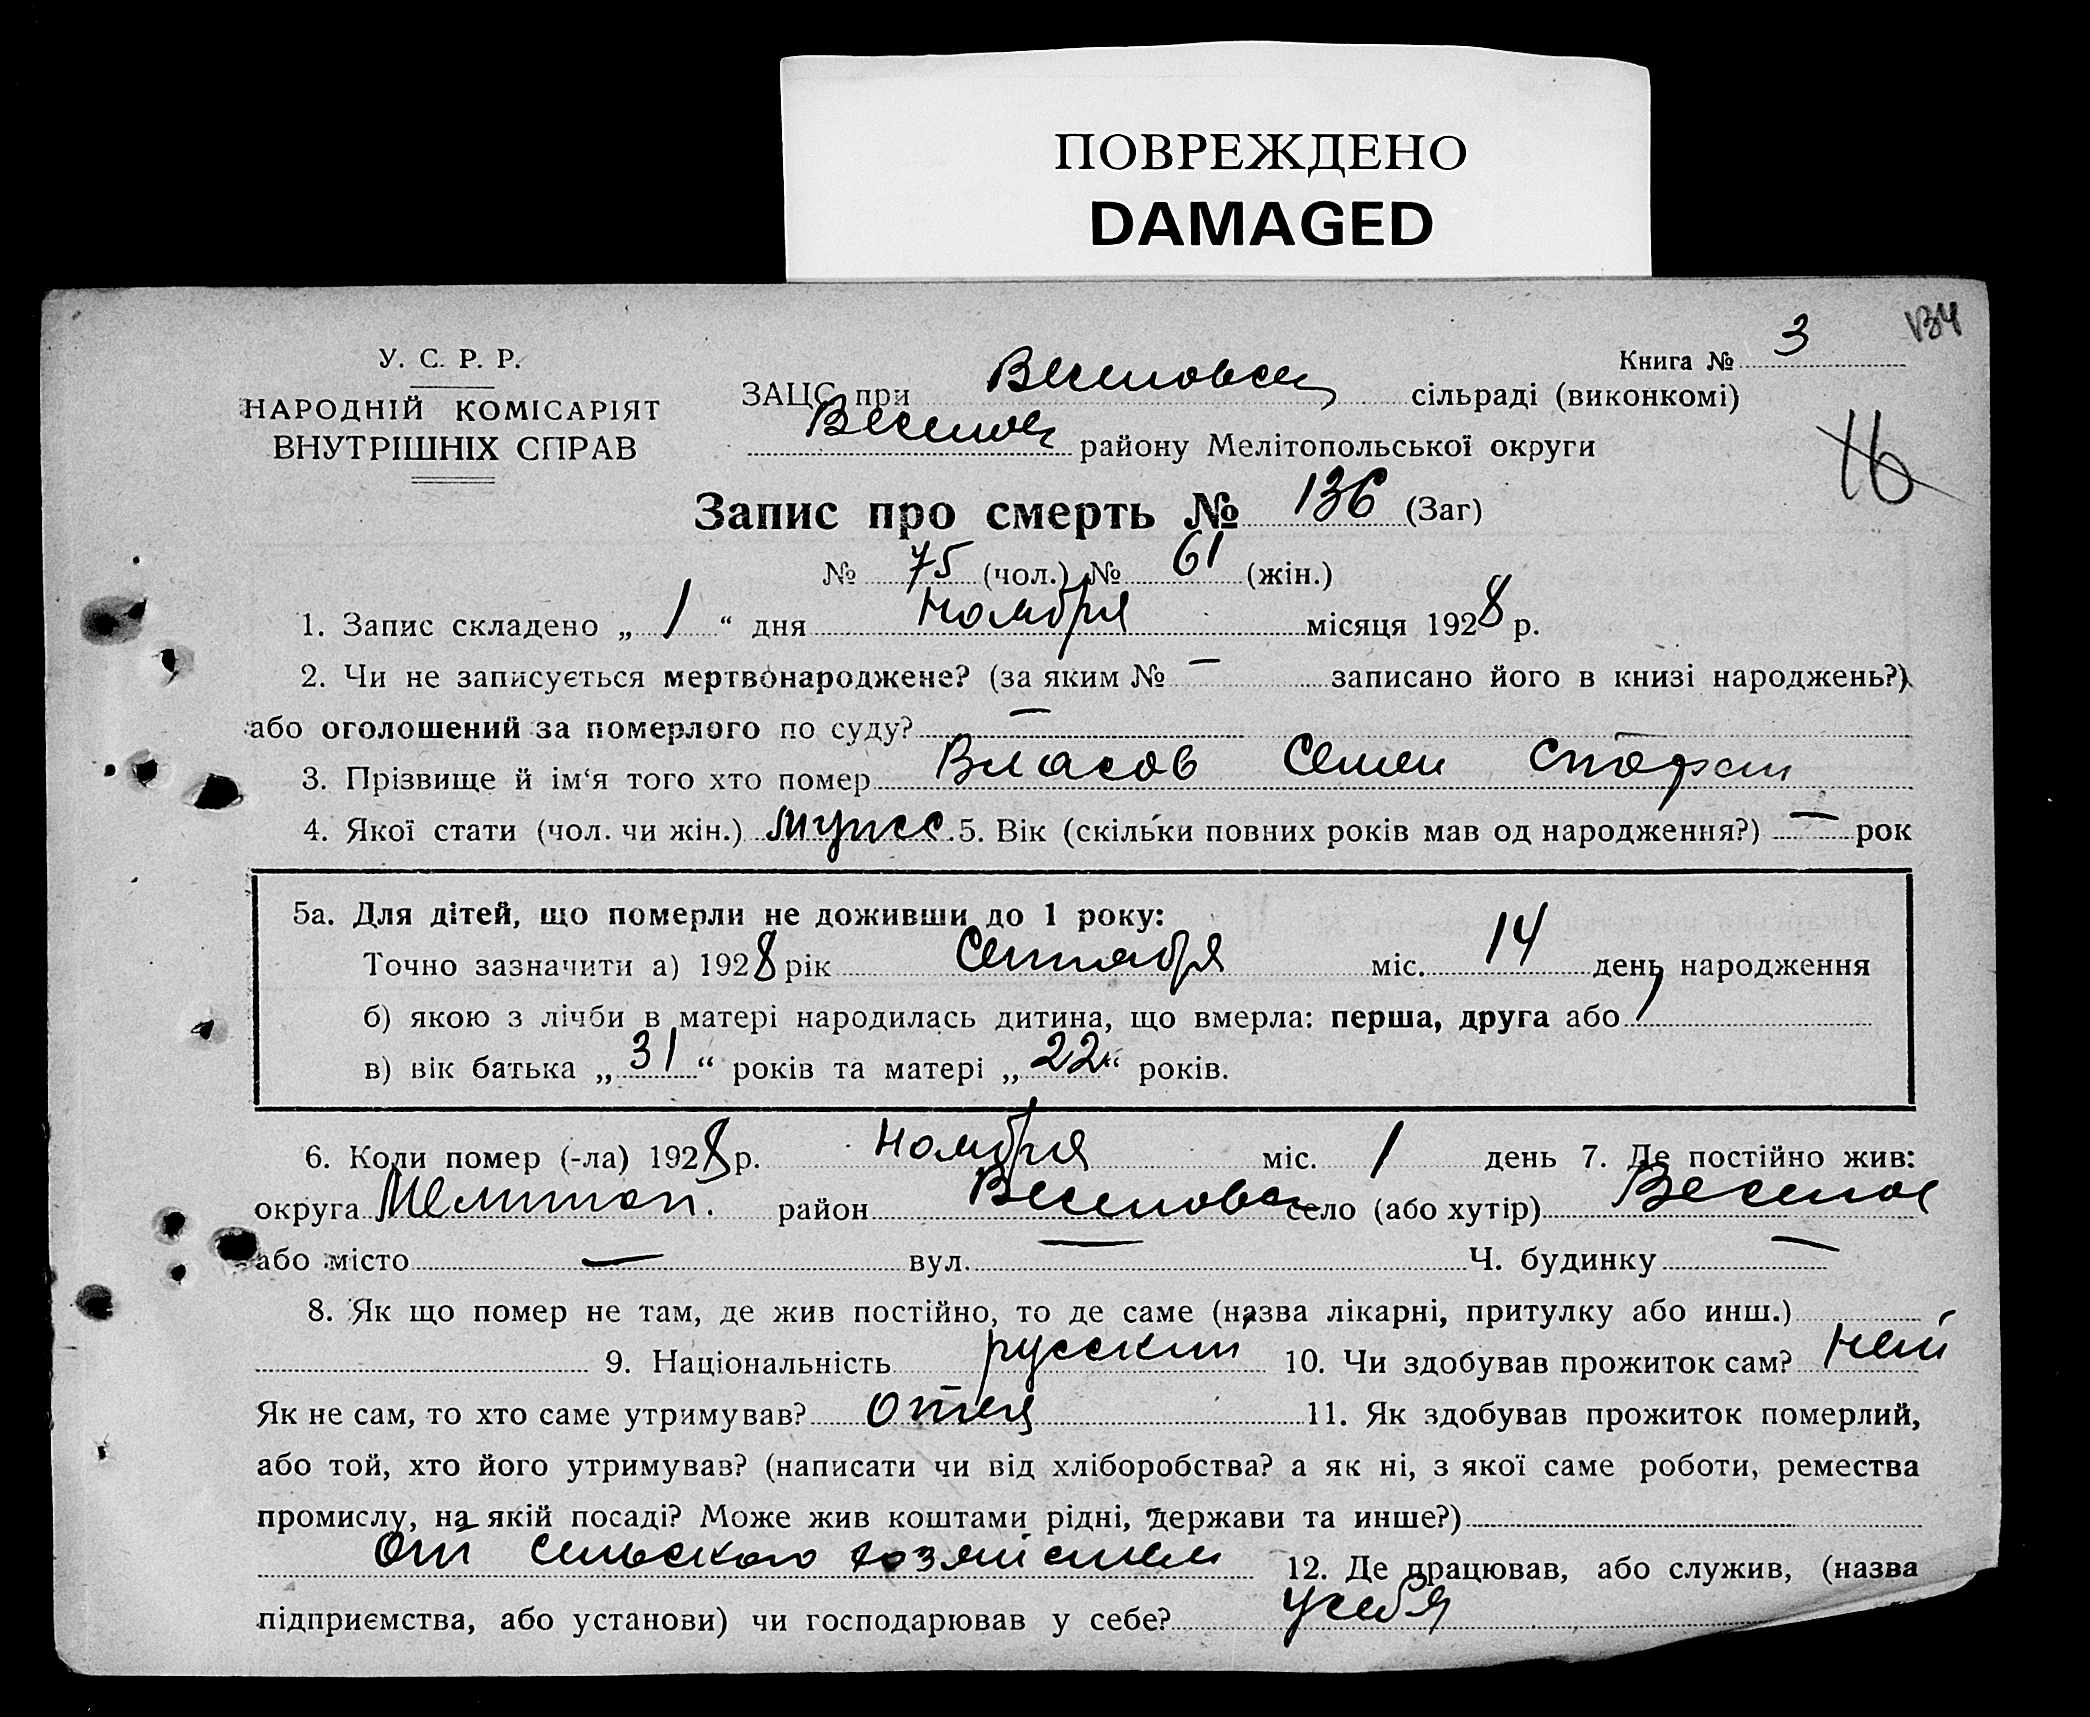 ПОВРЕЖДЕНО
DAMAGED
134
У. С. Р. Р.
НАРОДНІЙ КОМІСАРІЯТ
ВНУТРІШНІХ СПРАВ
Книга № 3
ЗАЦС при Веселовск сільраді (виконкомі)
Веселов району Мелітопольської округи
16
Запис про смерть № 136 (Заг)
№ 75 (чол.) № 61 (жін.)
1. Запис складено „ 1 “ дня ноября місяця 1928 р.
2. Чи не записується мертвонароджене? (за яким № — записано його в книзі народжень?)
або оголошений за померлого по суду? —
3. Прізвище й ім‘я того хто помер Власов Семен
4. Якої стати (чол. чи жін.) мужс. 5. Вік (скільки повних років мав од народження?) — рок
5а. Для дітей, що померли не доживши до 1 року:
Точно зазначити а) 1928 рік Сентября міс. 14 день народження
б) якою з лічби в матері народилась дитина, що вмерла: перша, друга або
в) вік батька „ 31 “ років та матері „ 22 “ років.
6. Коли помер (-ла) 1928 р. ноября міс. 1 день 7. Де постійно жив:
округа Мелитоп. район Веселовск село (або хутір) Веселое
або місто — вул. — Ч. будинку —
8. Як що помер не там, де жив постійно, то де саме (назва лікарні, притулку або инш.)
9. Національність русский 10. Чи здобував прожиток сам? нет
Як не сам, то хто саме утримував? отец 11. Як здобував прожиток померлий,
або той, хто його утримував? (написати чи від хліборобства? а як ні, з якої саме роботи, ремества
промислу, на якій посаді? Може жив коштами рідні, держави та инше?)
От сельского хозяйства 12. Де працював, або служив, (назва
підприємства, або установи) чи господарював у себе? у себя